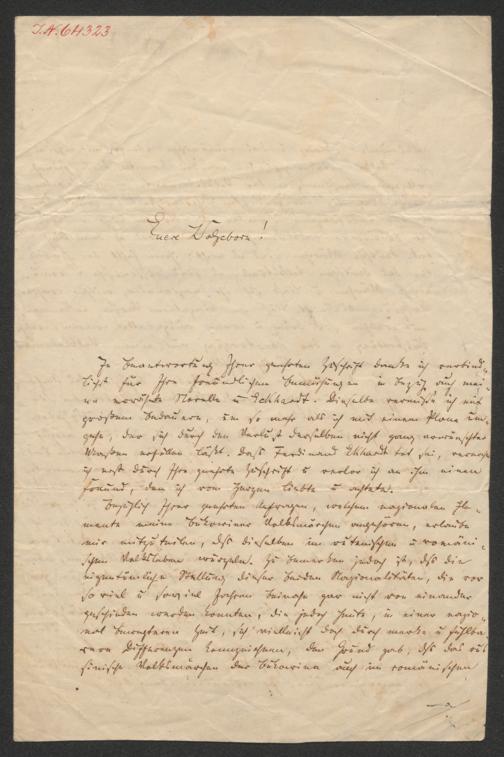 I.N. 64323
Euere Wolgeborn!
In Beantwortung Ihrer geehrten Zuschrift danke ich verbind-
lichst für Ihre freundlichen Bemühungen in Bezug auf mei-
ne Novelle u Eckhardt. Dieselbe vermißt ich mit
großem Bedauern, um so mehr als ich mit einem Plane um-
gehe, der sich durch den Verlust derselben nicht ganz
läßt. Daß Ferdinand tot sei,
ich erst durch Ihre geehrte Zuschrift u verlor ich an ihm einen
Freund, den ich von Herzen liebte u achtete.
Bezüglich Ihrer geehrten Anfragen, welchem nazionalen Ele-
mente meine Bukowiner Volksmärchen angehören, erlaube
mir mitzuteilen, daß dieselben im rutenischen u romäni-
schen Volksleben wurzeln. Zu bemerken jedoch ist, daß die
eigentümliche Stellung dieser beiden Nazionalitäten, die vor
so viel u soviel Jahren beinahe gar nicht von einander
geschieden werden konnten, die jedoch heute, in einer nazio-
nal Zeit, sich vielleicht doch durch markc u fühlba-
rere Differenzen kennzeichnen, den Grund gab, daß das rut-
sinische Volksmärchen der Bukowina auch im romänischen